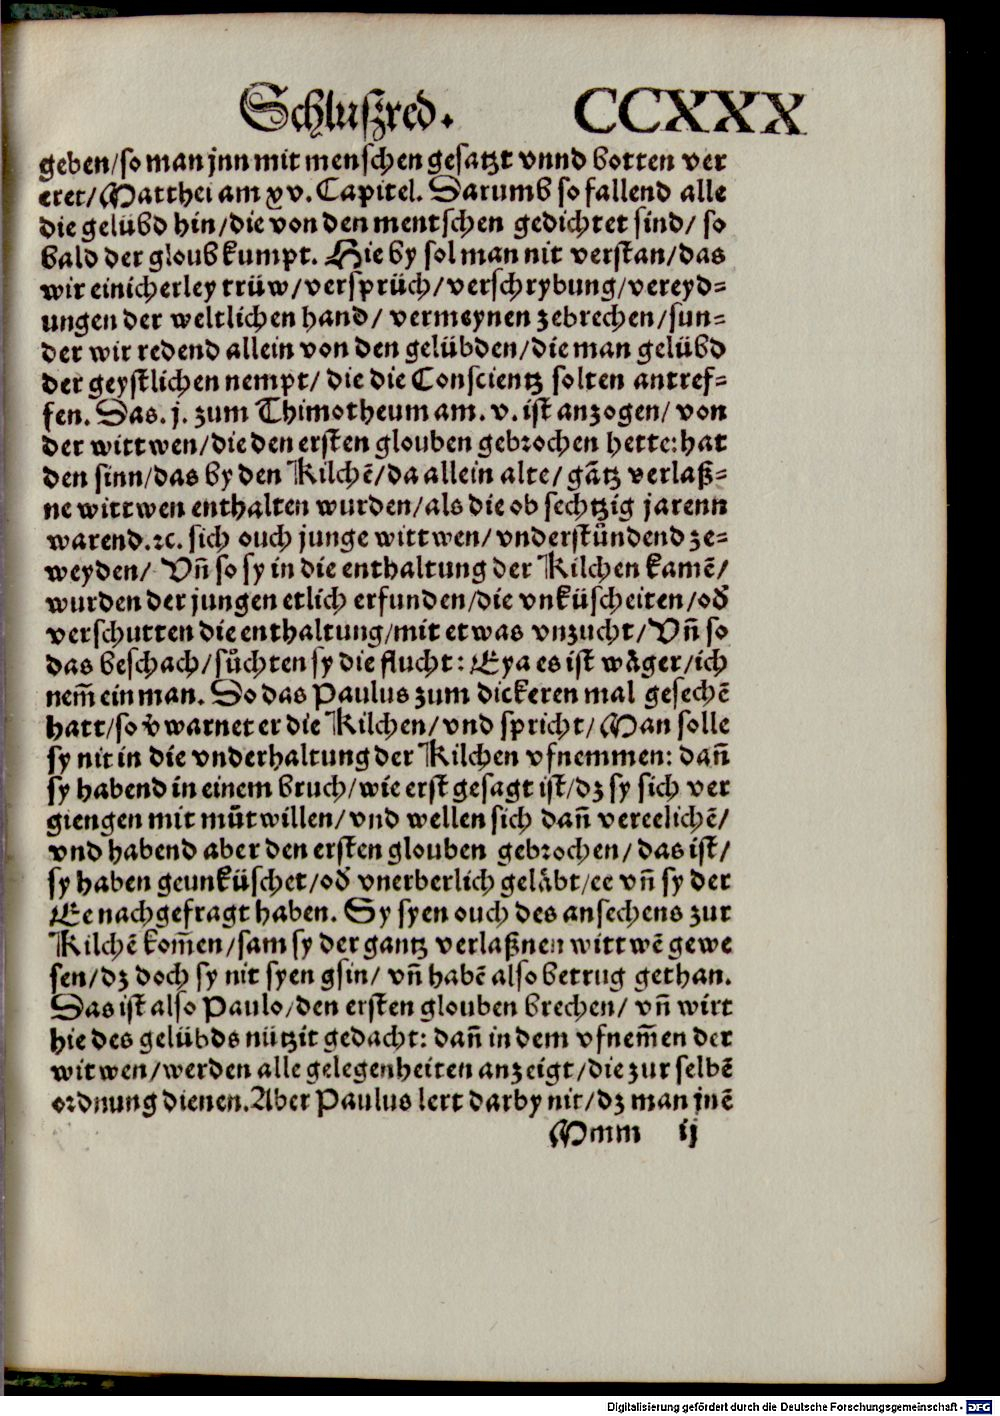 Schluszred. CCXXX
geben/so man jnn mit menschen gesatzt vnnd botten ver
eret/Matthei am xv. Capitel. Darumb so fallend alle
die gelübd hin/die von den mentschen gedichtet sind/ so
bald der gloub kumpt. Hie by sol man nit verstan/das
wir einicherley trüw/versprüch/verschrybung/vereyd-
ungen der weltlichen hand/ vermeynen zebrechen/sun-
der wir redend allein von den gelübden/die man gelübd
der geystlichen nempt/ die die Conscientz solten antref-
fen. Das. j. zum Thimotheum am. v. ist anzogen/ von
der wittwen/die den ersten glouben gebrochen hette: hat
den sinn/das by den Kilchē/da allein alte/ gātz verlaß-
ne wittwen enthalten wurden/als die ob sechtzig jarenn
warend.ꝛc. sich ouch junge wittwen/ vnderstůndend ze-
weyden/ Vñ so sy in die enthaltung der Kilchen kamē/
wurden der jungen etlich erfunden/die vnküscheiten/od̕
verschutten die enthaltung/mit etwas vnzucht/Vñ so
das beschach/sůchten sy die flucht: Eya es ist wåger/ich
nem̄ ein man. So das Paulus zum dickeren mal gesechē
hatt/so v̕warnet er die Kilchen/vnd spricht/Man solle
sy nit in die vnderhaltung der Kilchen vfnemmen: dañ
sy habend in einem bruch/wie erst gesagt ist/dz sy sich ver
giengen mit můtwillen/vnd wellen sich dañ vereelichē/
vnd habend aber den ersten glouben gebrochen/das ist/
sy haben geunküschet/od̕ vnerberlich gelåbt/ee vñ sy der
Ee nachgefragt haben. Sy syen ouch des ansechens zur
Kilchē kom̄en/sam sy der gantz verlaßnen wittwē gewe
sen/dz doch sy nit syen gsin/ vñ habē also betrug gethan.
Das ist also Paulo/den ersten glouben brechen/ vñ wirt
hie des gelübds nützit gedacht: dañ in dem vfnem̄en der
witwen/werden alle gelegenheiten anzeigt/die zur selbē
ordnung dienen. Aber Paulus lert darby nit/dz man jnē
Mmm ij
Digitalisierung gefördert durch die Deutsche Forschungsgemeinschaft - DFG